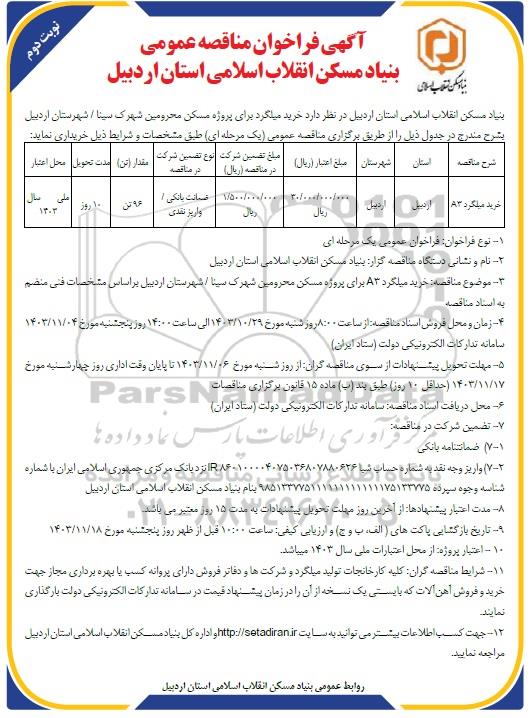 نوبت دوم
آگهی فراخوان مناقصه عمومی
بنیاد مسکن انقلاب اسلامی استان اردبیل
بنیاد مسکن انقلاب اسلامی
بنیاد مسکن انقلاب اسلامی استان اردبیل در نظر دارد خرید میلگرد برای پروژه مسکن محرومین شهرک سینا / شهرستان اردبیل
بشرح مندرج در جدول ذیل را از طریق برگزاری مناقصه عمومی (یک مرحله ای) طبق مشخصات و شرایط ذیل خریداری نماید:
شرح مناقصه | استان | شهرستان | مبلغ اعتبار (ریال) | مبلغ تضمین شرکت در مناقصه (ریال) | نوع تضمین شرکت در مناقصه | مقدار (تن) | مدت تحویل | محل اعتبار
خرید میلگرد A۳ | اردبیل | اردبیل | ۳۰/۰۰۰/۰۰۰/۰۰۰ ریال | ۱/۵۰۰/۰۰۰/۰۰۰ ریال | ضمانت بانکی / واریز نقدی | ۹۶ تن | ۱۰ روز | ملی سال ۱۴۰۳
۱- نوع فراخوان: فراخوان عمومی یک مرحله ای
۲- نام و نشانی دستگاه مناقصه گزار: بنیاد مسکن انقلاب اسلامی استان اردبیل
۳- موضوع مناقصه: خرید میلگرد A۳ برای پروژه مسکن محرومین شهرک سینا / شهرستان اردبیل براساس مشخصات فنی منضم
به اسناد مناقصه
۴- زمان و محل فروش اسناد مناقصه: از ساعت ۸:۰۰ روز شنبه مورخ ۱۴۰۳/۱۰/۲۹ الی ساعت ۱۴:۰۰ روز پنجشنبه مورخ ۱۴۰۳/۱۱/۰۴
سامانه تدارکات الکترونیکی دولت (ستاد ایران)
۵- مهلت تحویل پیشنهادات از سوی مناقصه گران: از روز شنبه مورخ ۱۴۰۳/۱۱/۰۶ تا پایان وقت اداری روز چهارشنبه مورخ
۱۴۰۳/۱۱/۱۷ (حداقل ۱۰ روز) طبق بند (ب) ماده ۱۵ قانون برگزاری مناقصات
۶- محل دریافت اسناد مناقصه: سامانه تدارکات الکترونیکی دولت (ستاد ایران)
۷- تضمین شرکت در مناقصه:
۷-۱) ضمانتنامه بانکی
۷-۲) واریز وجه نقد به شماره حساب شبا IR۸۶۰۱۰۰۰۰۴۰۷۵۰۳۶۸۰۷۸۸۰۶۲۶ نزد بانک مرکزی جمهوری اسلامی ایران با شماره
شناسه وجوه سپرده بنام بنیاد مسکن انقلاب اسلامی استان اردبیل
۸- مدت اعتبار پیشنهادها: از آخرین روز مهلت تحویل پیشنهادات به مدت ۱۵ روز معتبر می باشد.
۹- تاریخ بازگشایی پاکت های (الف، ب و ج) و ارزیابی کیفی: ساعت ۱۰:۰۰ قبل از ظهر روز پنجشنبه مورخ ۱۴۰۳/۱۱/۱۸
۱۰- اعتبار پروژه: از محل اعتبارات ملی سال ۱۴۰۳ میباشد.
۱۱- شرایط مناقصه گران: کلیه کارخانجات تولید میلگرد و شرکت ها و دفاتر فروش دارای پروانه کسب یا بهره برداری مجاز جهت
خرید و فروش آهن آلات که بایستی یک نسخه از آن را در زمان پیشنهاد قیمت در سامانه تدارکات الکترونیکی دولت بارگذاری
نمایند.
۱۲- جهت کسب اطلاعات بیشتر می توانید به سایت http://setadiran.ir و اداره کل بنیاد مسکن انقلاب اسلامی استان اردبیل
مراجعه نمایید.
روابط عمومی بنیاد مسکن انقلاب اسلامی استان اردبیل
ParsNamadData
مرکز فرآوری اطلاعات پارس نماد داده ها